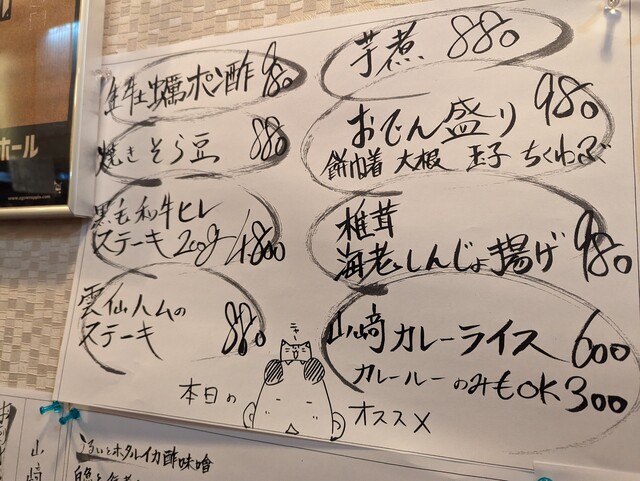 生牡蠣ポン酢 980
焼きそら豆 880
黒毛和牛ヒレ
ステーキ 200g 4800
雲仙ハムの
ステーキ 880
芋煮 880
おでん盛り 980
餅巾着 大根 玉子 ちくわぶ
椎茸
海老しんじょ揚げ 980
山﨑カレーライス 600
カレールーのみもOK 300
本日の
オススメ
うるいとホタルイカ酢味噌
ホール
山﨑